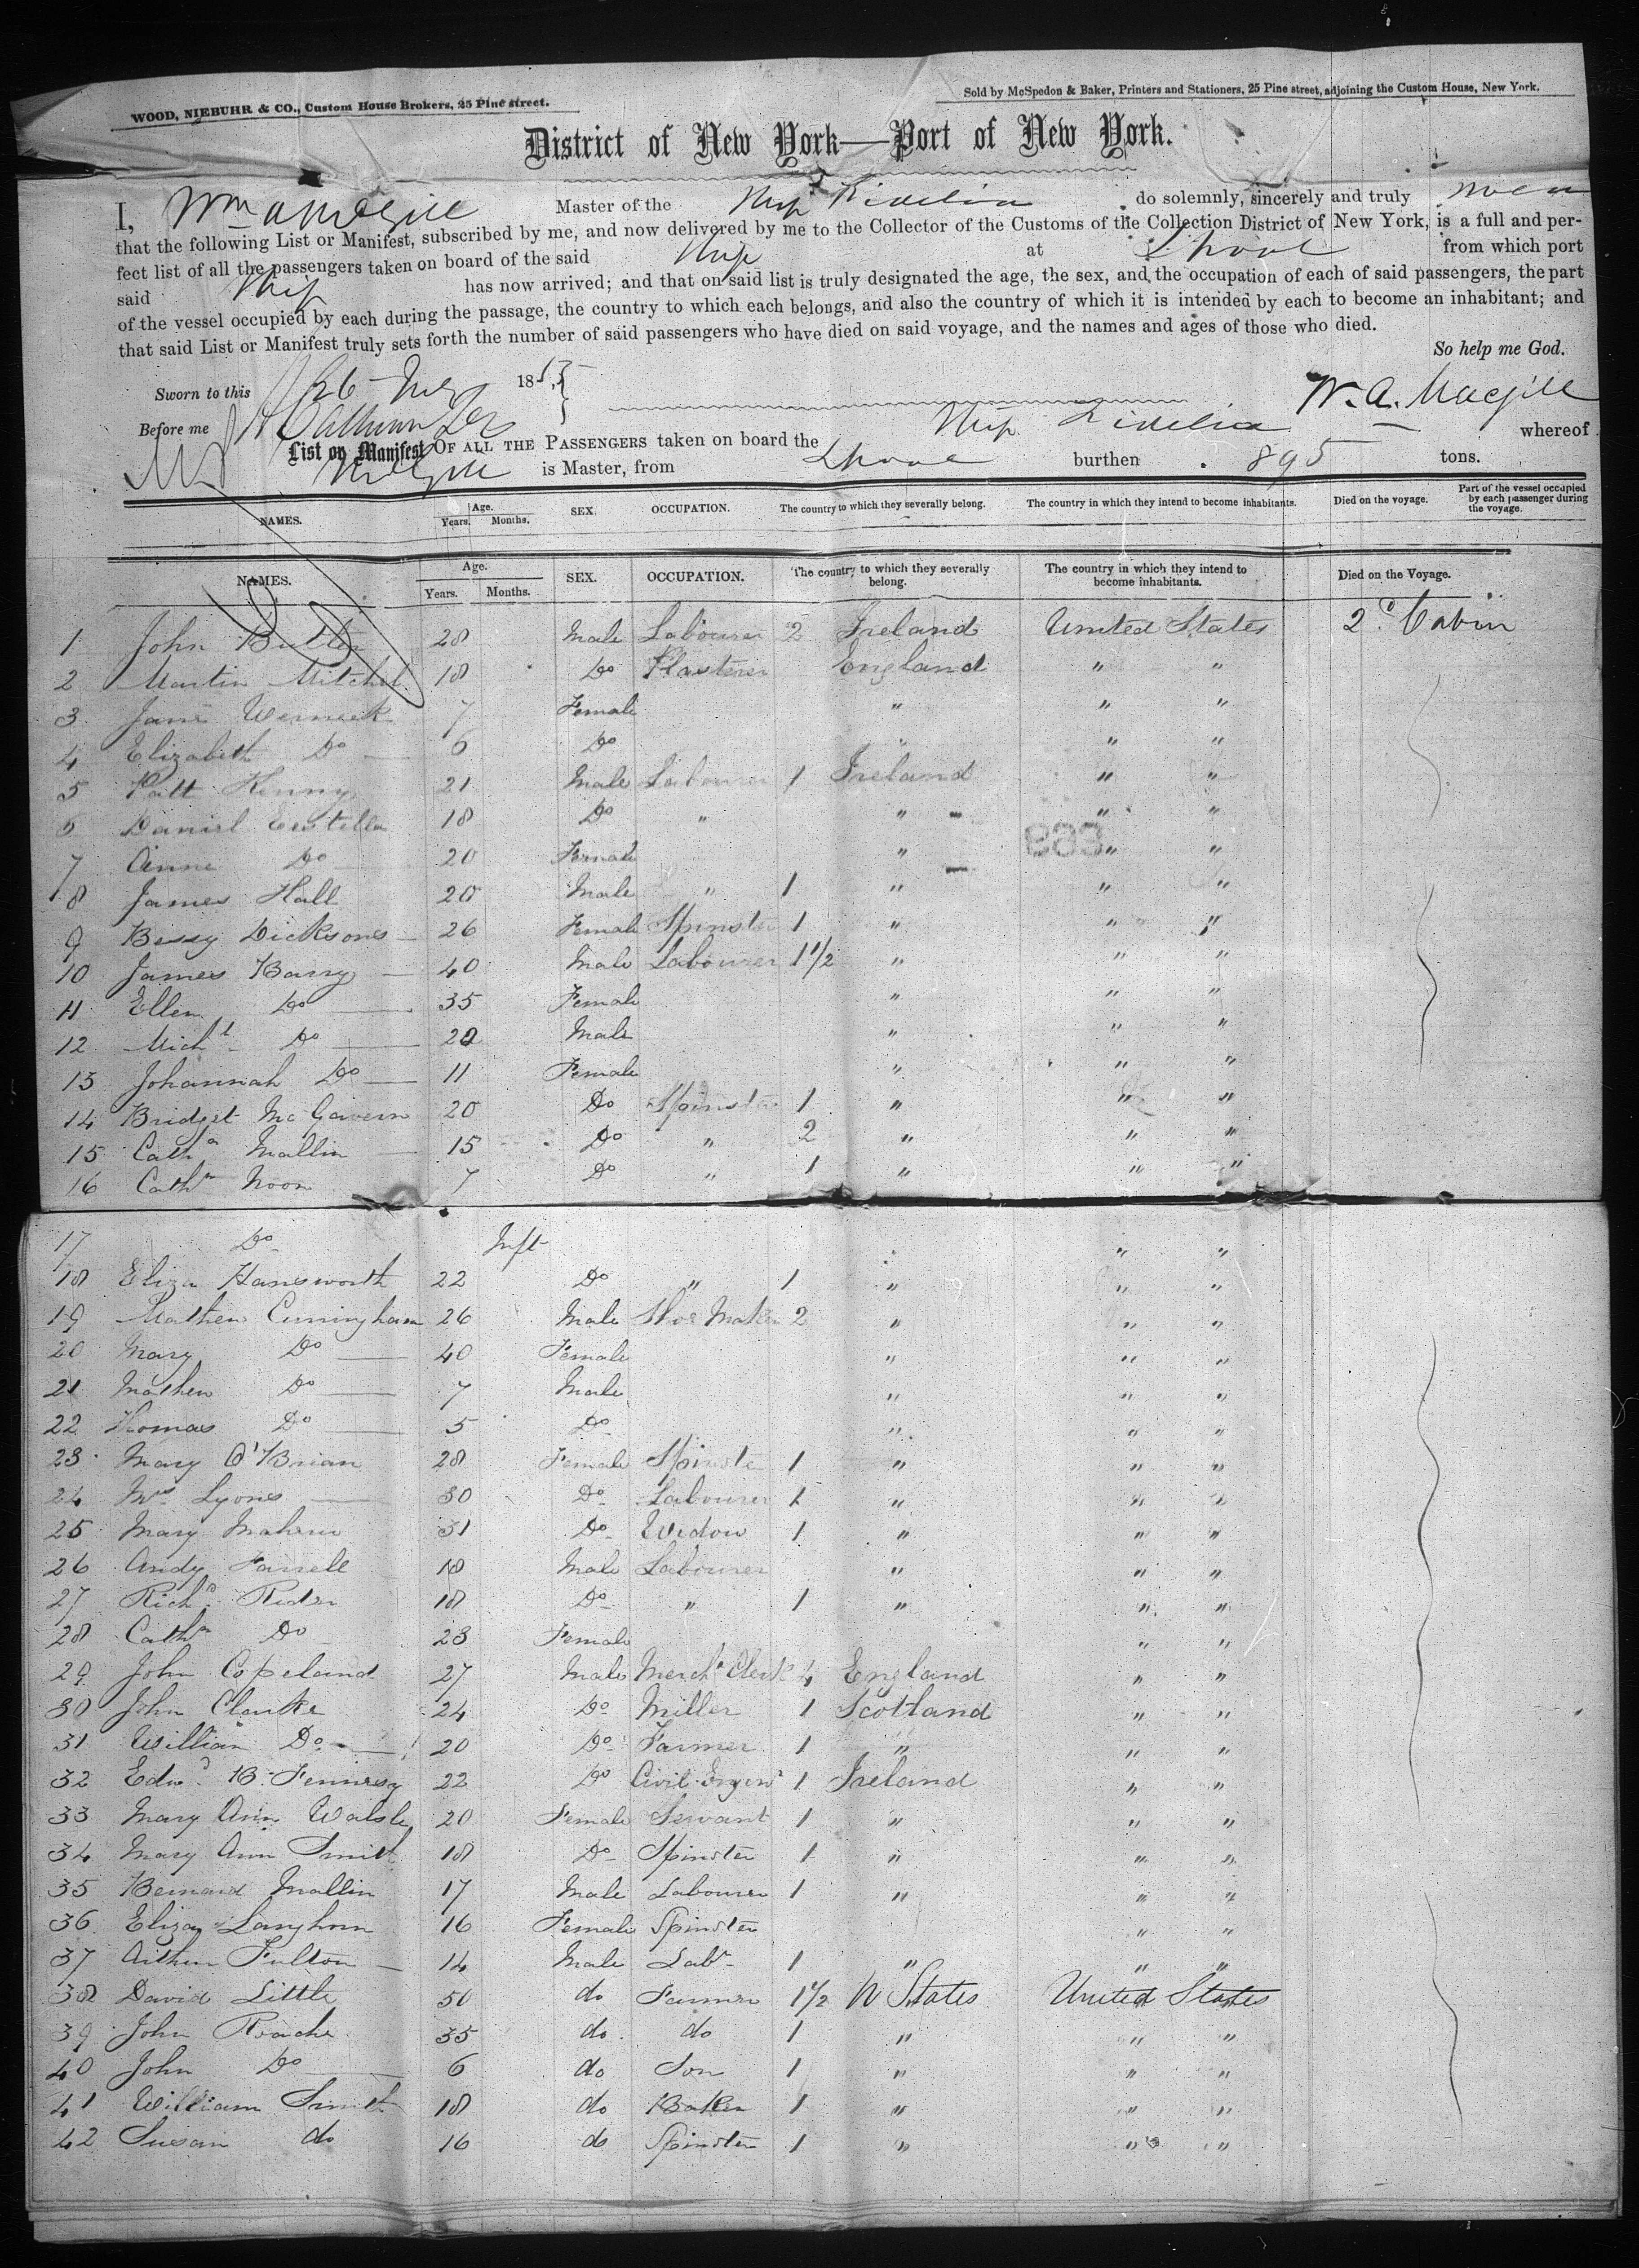 WOOD, NIEBUHR & CO., Custom House Brokers, 25 Pine street.
Sold by McSpedon & Baker, Printers and Stationers, 25 Pine street, adjoining the Custom House, New York.
District of New York—Port of New York.
I, Wm A McGill Master of the Ship Fidelia do solemnly, sincerely and truly swear
that the following List or Manifest, subscribed by me, and now delivered by me to the Collector of the Customs of the Collection District of New York, is a full and per-
fect list of all the passengers taken on board of the said Ship at Lpool from which port
said Ship has now arrived; and that on said list is truly designated the age, the sex, and the occupation of each of said passengers, the part
of the vessel occupied by each during the passage, the country to which each belongs, and also the country of which it is intended by each to become an inhabitant; and
that said List or Manifest truly sets forth the number of said passengers who have died on said voyage, and the names and ages of those who died.
So help me God.
Sworn to this 26 1853
W. A. Macgill
Before me
List or Manifest OF ALL THE PASSENGERS taken on board the Ship Fidelia whereof
McGill is Master, from Lpool burthen 895 tons.
NAMES. Age. Years. Months. SEX. OCCUPATION. The country to which they severally belong. The country in which they intend to become inhabitants. Died on the voyage. Part of the vessel occupied by each passenger during the voyage.
NAMES. Age. Years. Months. SEX. OCCUPATION. The country to which they severally belong. The country in which they intend to become inhabitants. Died on the Voyage.
1 John Butler 28 Male Labourer 2 Ireland United States 2d Cabin
2 Martin Mitchel 18 Do Plasterer England " "
3 Jane 7 Female " " "
4 Elizabeth Do 6 Do " " "
5 Patt Kenny 21 Male Labourer 1 Ireland " "
6 Daniel Costello 18 Do " " " "
7 Anne Do 20 Female " " "
8 James Hall 20 Male " 1 " " "
9 Bessy Dicksons 26 Female Spinster 1 " " "
10 James Barry 40 Male Labourer 1 1/2 " " "
11 Ellen Do 35 Female " " "
12 Michl Do 20 Male " " "
13 Johannah Do 11 Female " " "
14 Bridget McGavern 20 Do Spinster 1 " " "
15 Cathn Mallin 15 Do " 2 " " "
16 Cathn Noon 7 Do " 1 " " "
17 Do Inft " " "
18 Eliza Hansworth 22 Do " 1 " " "
19 Mathew Cuningham 26 Male Shoe Maker 2 " " "
20 Mary Do 40 Female " " "
21 Mathew Do 7 Male " " "
22 Thomas Do 5 Do " " "
23 Mary O'Brian 28 Female Spinste 1 " " "
24 Mrs Lyons 30 Do Labourer 1 " " "
25 Mary 31 Do Widow 1 " " "
26 Andy Farrell 18 Male Labourer " " "
27 Richd Rider 18 Do " 1 " " "
28 Cathn Do 23 Female " "
29 John Copeland 27 Male Mercht Clerk 4 England " "
30 John Clarke 24 Do Miller 1 Scotland " "
31 William Do 20 Do Farmer 1 " " "
32 Edwd B. Fennesy 22 Do Civil Engenr 1 Ireland " "
33 Mary Ann Walsh 20 Female Servant 1 " " "
34 Mary Ann Smith 18 Do Spinster 1 " " "
35 Bernard Mallin 17 Male Labourer 1 " " "
36 Eliza Langhorn 16 Female Spinster " "
37 Arthur Fulton 14 Male Labr 1 " " "
38 David Little 50 do Farmer 1 1/2 U States United States
39 John Roache 35 do do 1 " " "
40 John Do 6 do Son 1 " " "
41 William Smith 18 do Baker 1 " " "
42 Susan do 16 do Spinster 1 " " "